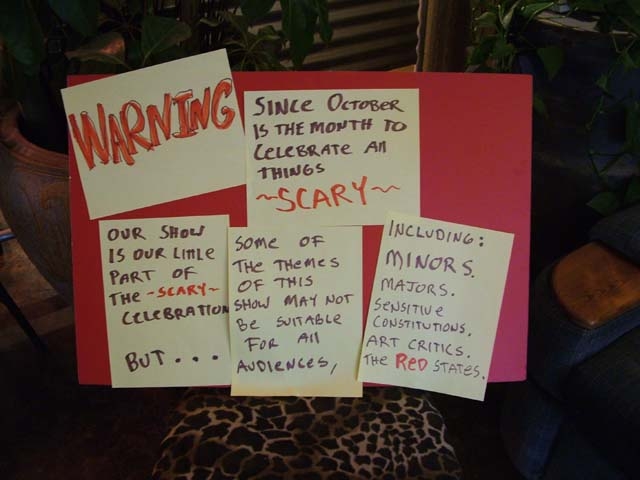 WARNING
SINCE OCTOBER
IS THE MONTH TO
CELEBRATE All
THINGS
~SCARY~
OUR SHOW
IS OUR LITTLE
PART OF
THE ~SCARY~
CELEBRATION
BUT...
SOME OF
THE THEMES
OF THIS
SHOW MAY NOT
BE SUITABLE
FOR All
AUDIENCES,
INCLUDING:
MINORS.
MAJORS.
SENSITIVE
CONSTITUTIONS.
ART CRITICS.
THE RED STATES.